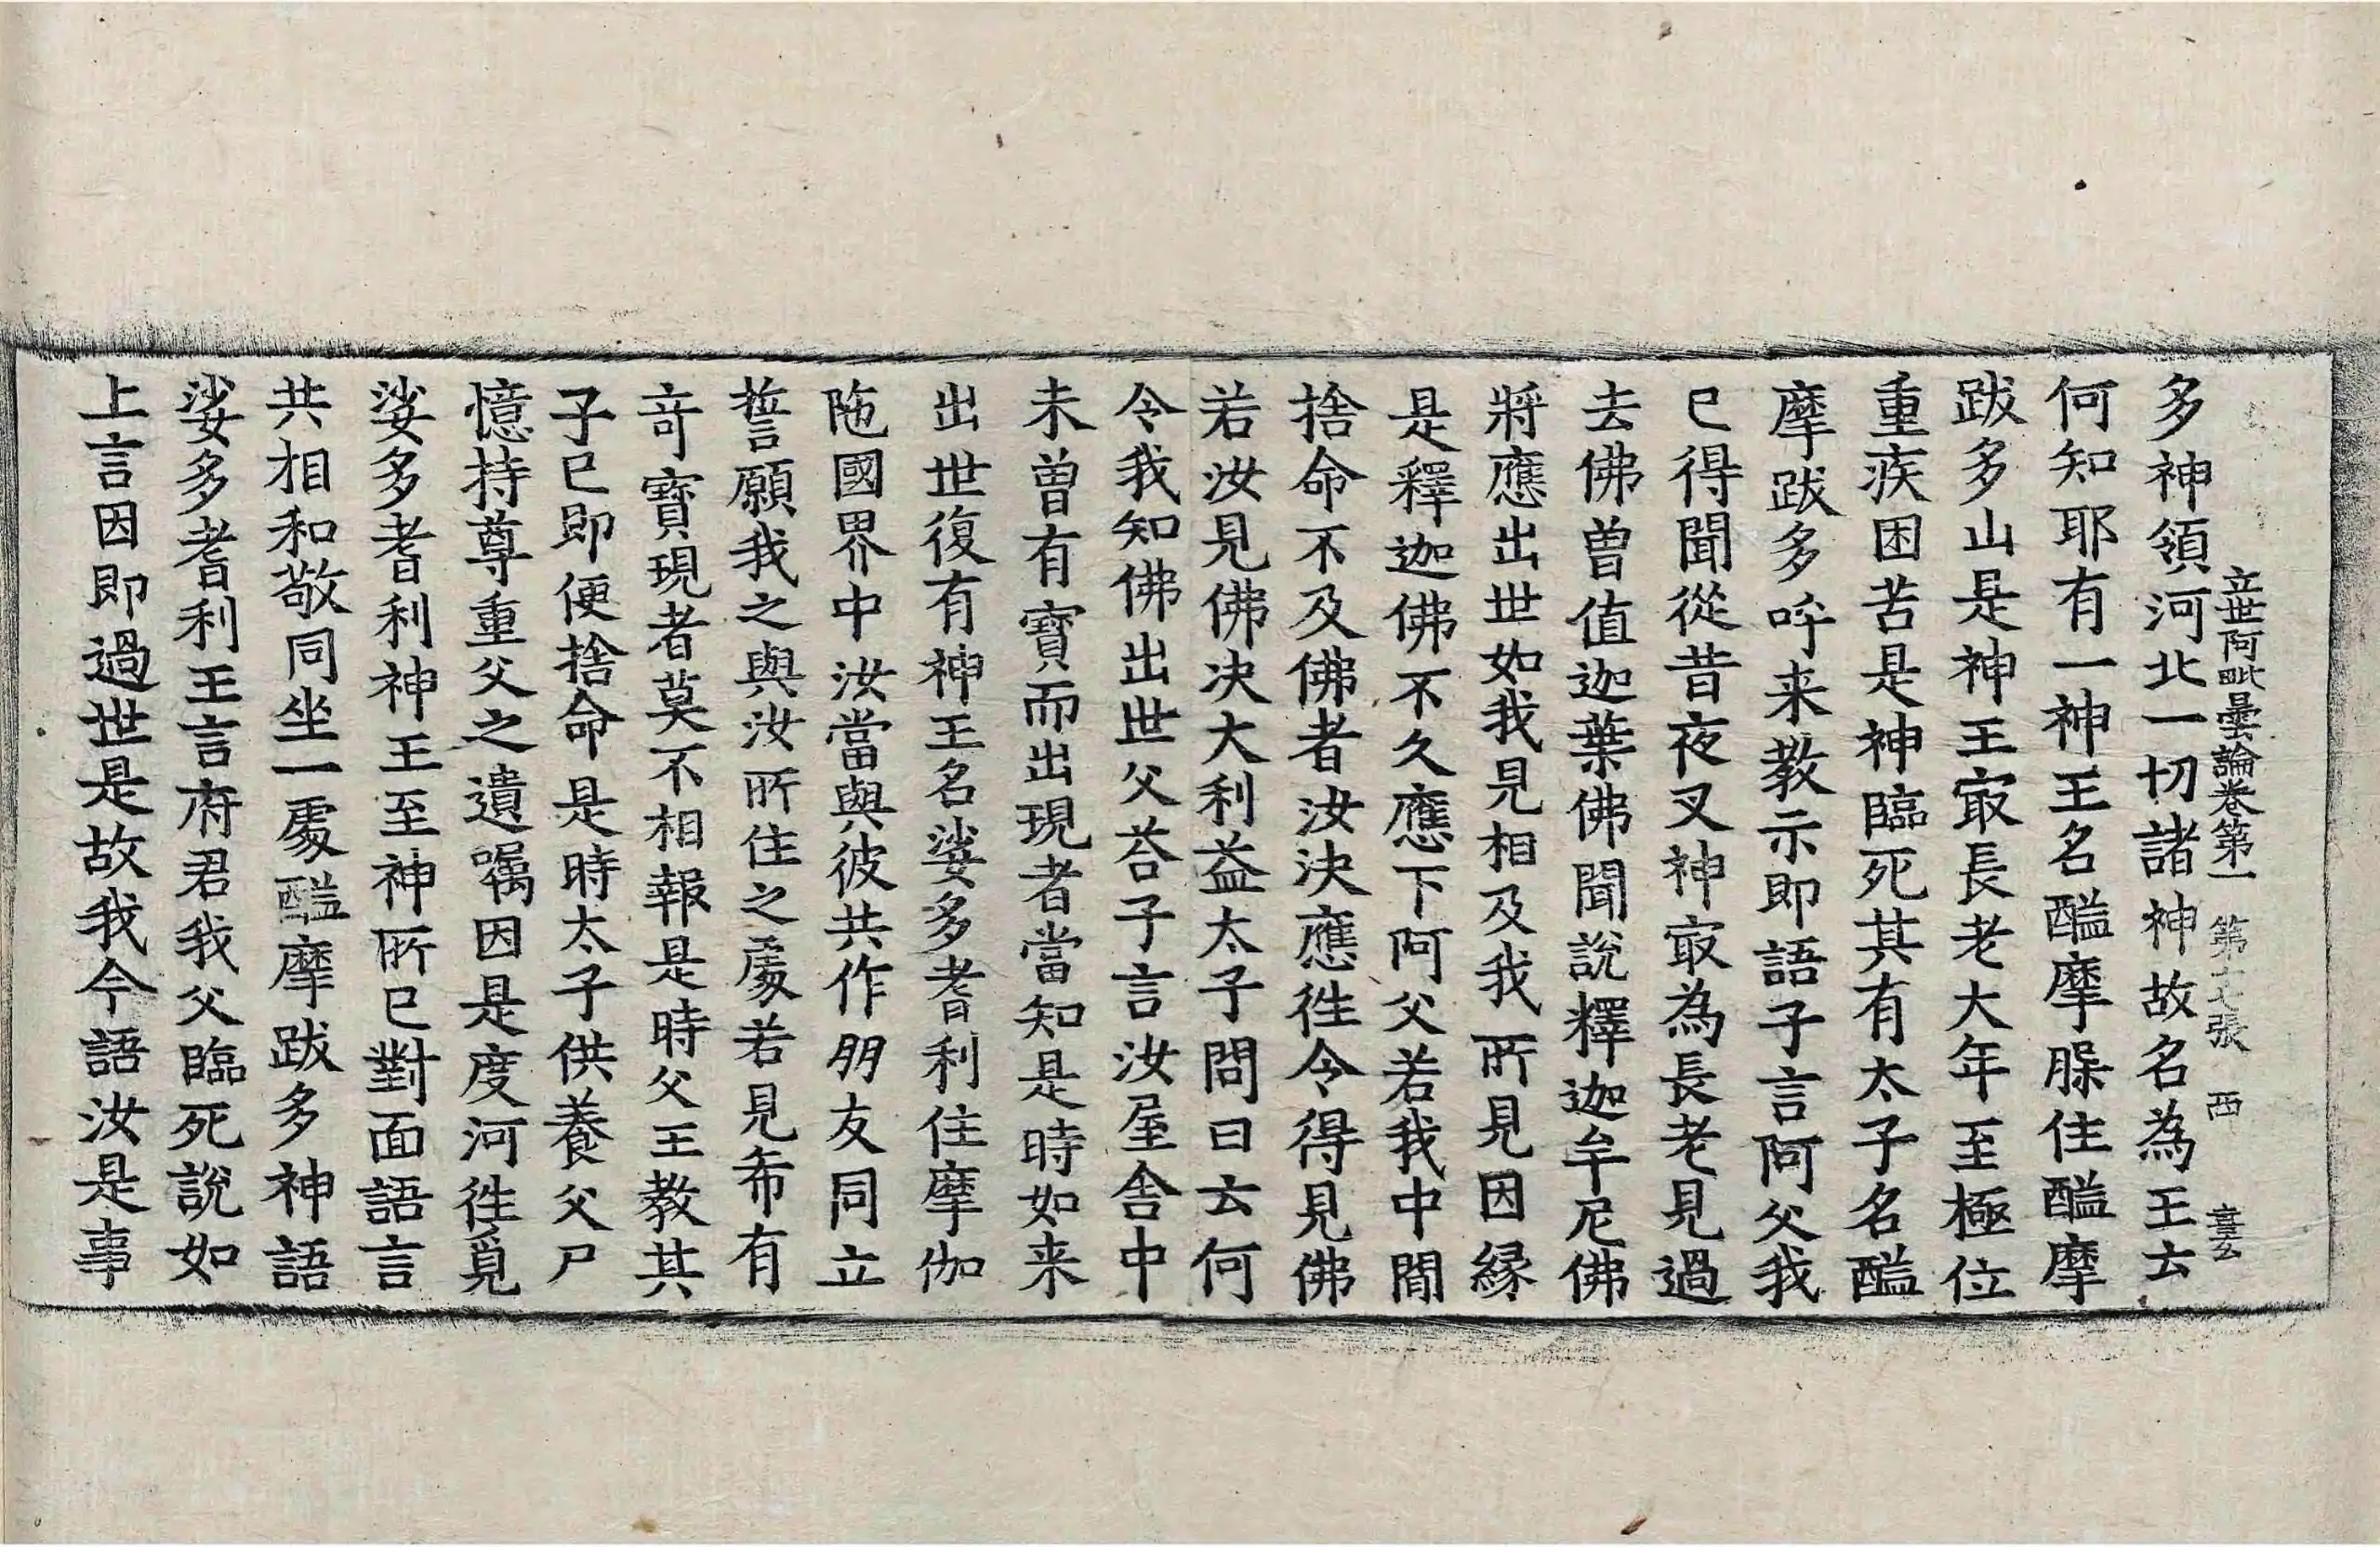 立世阿毗曇論卷第一 第十七張 西
多神領河北一切諸神故名為王云
何知耶有一神王名醯摩䐧住醯摩
跋多山是神王㝡長老大年至極位
重疾困苦是神臨死其有太子名醯
摩跋多呼来教示即語子言阿父我
已得聞從昔夜叉神㝡為長老見過
去佛曽值迦葉佛聞說釋迦牟尼佛
將應出世如我見相及我所見因縁
是釋迦佛不久應下阿父若我中間
捨命不及佛者汝決應徃令得見佛
若汝見佛决大利益太子問曰云何
令我知佛出世父荅子言汝屋舎中
未曽有寶而出現者當知是時如来
出世復有神王名娑多耆利住摩伽
陁國界中汝當與彼共作朋友同立
誓願我之與汝所住之處若見希有
竒寶現者莫不相報是時父王教其
子已即便捨命是時太子供養父尸
憶持尊重父之遺嘱因是度河徃覓
娑多耆利神王至神所已對面語言
共相和敬同坐一處醯摩跋多神語
娑多耆利王言府君我父臨死說如
上言因即過世是故我今語汝是事